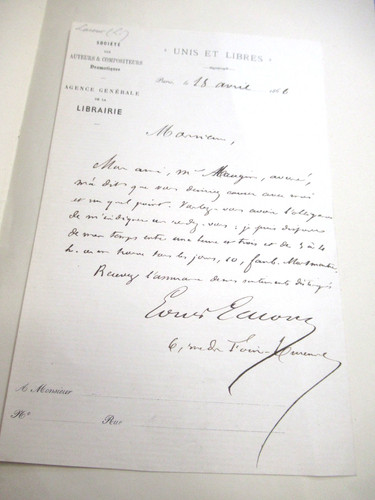 SOCIÉTÉ
DES
AUTEURS & COMPOSITEURS
Dramatiques
AGENCE GÉNÉRALE
DE LA
LIBRAIRIE
" UNIS ET LIBRES "
Paris, le 18 avril 186
Monsieur,
Mon ami, Mr Maugin, avoué,
m'a dit que vous désirez causer avec moi
et sur quel point. Voulez-vous avoir l'obligeance
de m'indiquer un rendez-vous : je puis disposer
de mon temps entre une heure et trois et de 5 à 6
h. on me trouve tous les jours, 10, faub. Montmartre
Recevez l'assurance de mes sentiments distingués
Louis
6, rue de
A Monsieur
No
Rue